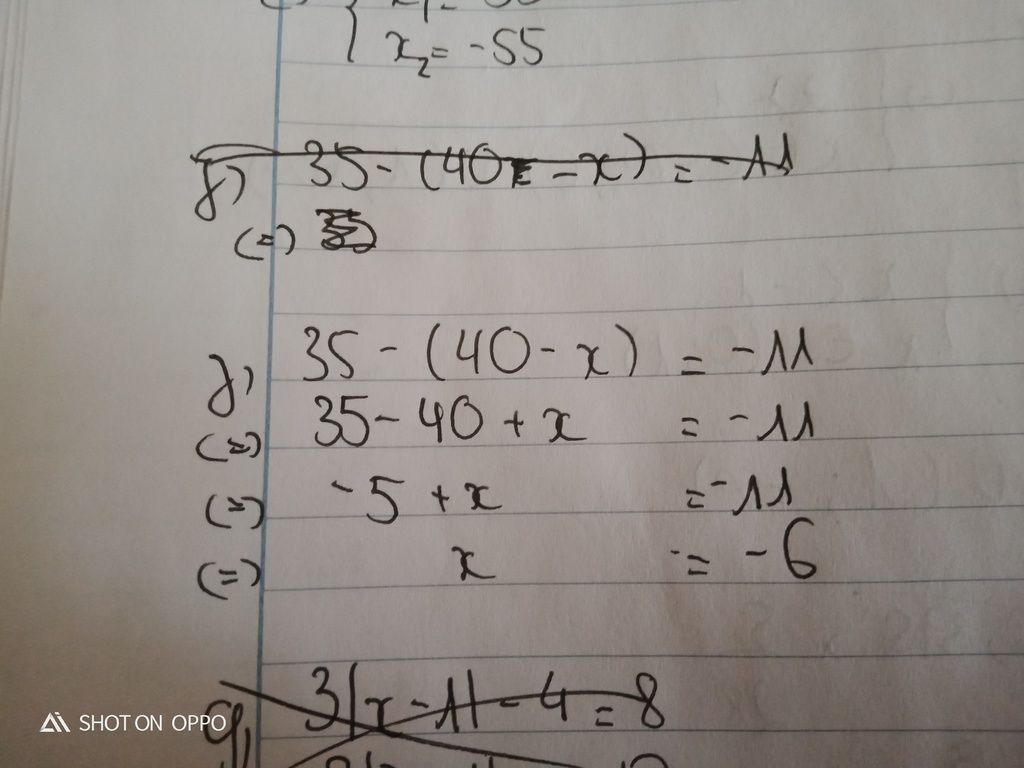 x₂ = -55
f) 35 - (40 - x) = -11
(=)
f) 35 - (40 - x) = -11
(=) 35 - 40 + x = -11
(=) -5 + x = -11
(=) x = -6
g) 3|x - 1| - 4 = 8
SHOT ON OPPO